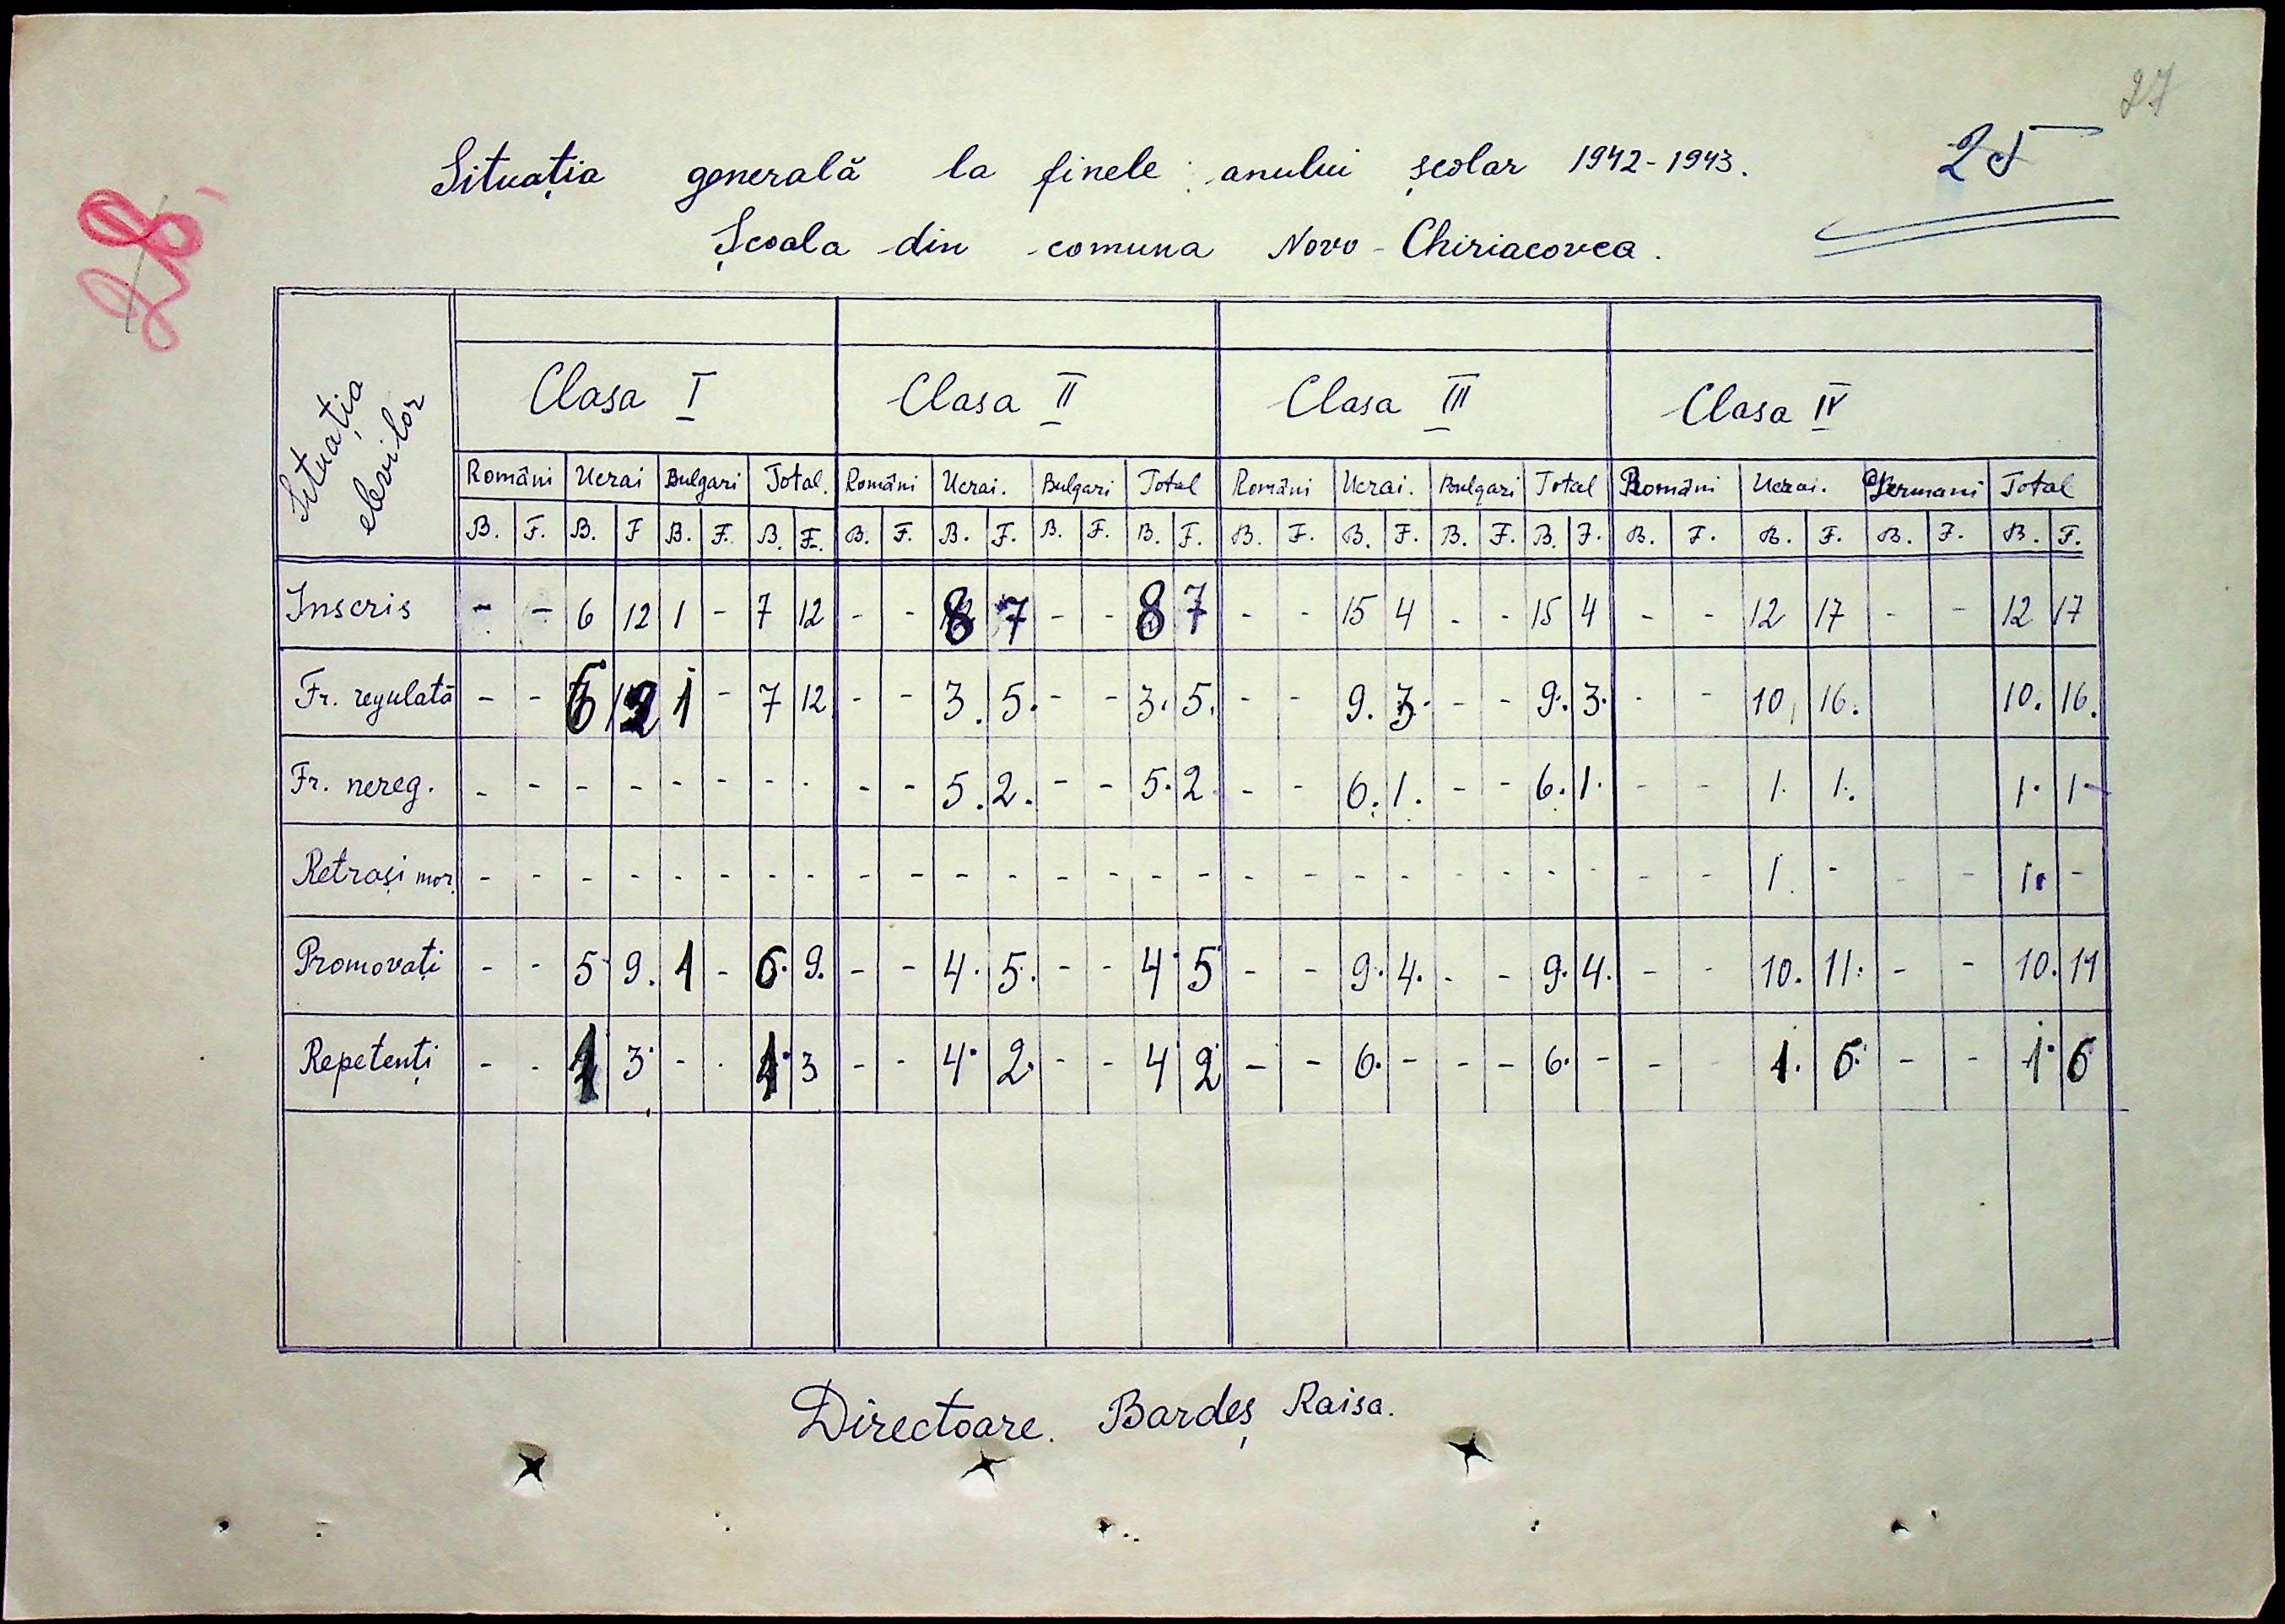 27
25
28
Situația generală la finele anului școlar 1942-1943.
Școala din comuna Novo-Chiriacovca.
Situația elevilor Clasa I Clasa II Clasa III Clasa IV
Români Ucrai Bulgari Total. Români Ucrai. Bulgari Total Români Ucrai. Bulgari Total Români Ucrai. Germani Total
B. F. B. F B. F. B. F. B. F. B. F. B. F. B. F. B. F. B. F. B. F. B. F. B. F. B. F. B. F. B. F.
Inscris - - 6 12 1 - 7 12 - - 8 7 - - 8 7 - - 15 4 - - 15 4 - - 12 17 - - 12 17
Fr. regulată - - 6 12 1 - 7 12 - - 3. 5. - - 3. 5. - - 9. 3. - - 9. 3. - - 10. 16. 10. 16.
Fr. nereg. - - - - - - - - - - 5. 2. - - 5. 2 - - 6. 1. - - 6. 1. - - 1. 1. 1. 1-
Retrași mor. - - - - - - - - - - - - - - - - - - - - - - - - - - 1. - - - 1. -
Promovați - - 5. 9. 1 - 6. 9. - - 4. 5. - - 4. 5 - - 9. 4. - - 9. 4. - - 10. 11. - - 10. 11
Repetenți - - 1 3. - - 1. 3 - - 4. 2. - - 4 2 - - 6. - - - 6. - - - 1. 6. - - 1. 6
Directoare. Bardeș Raisa.